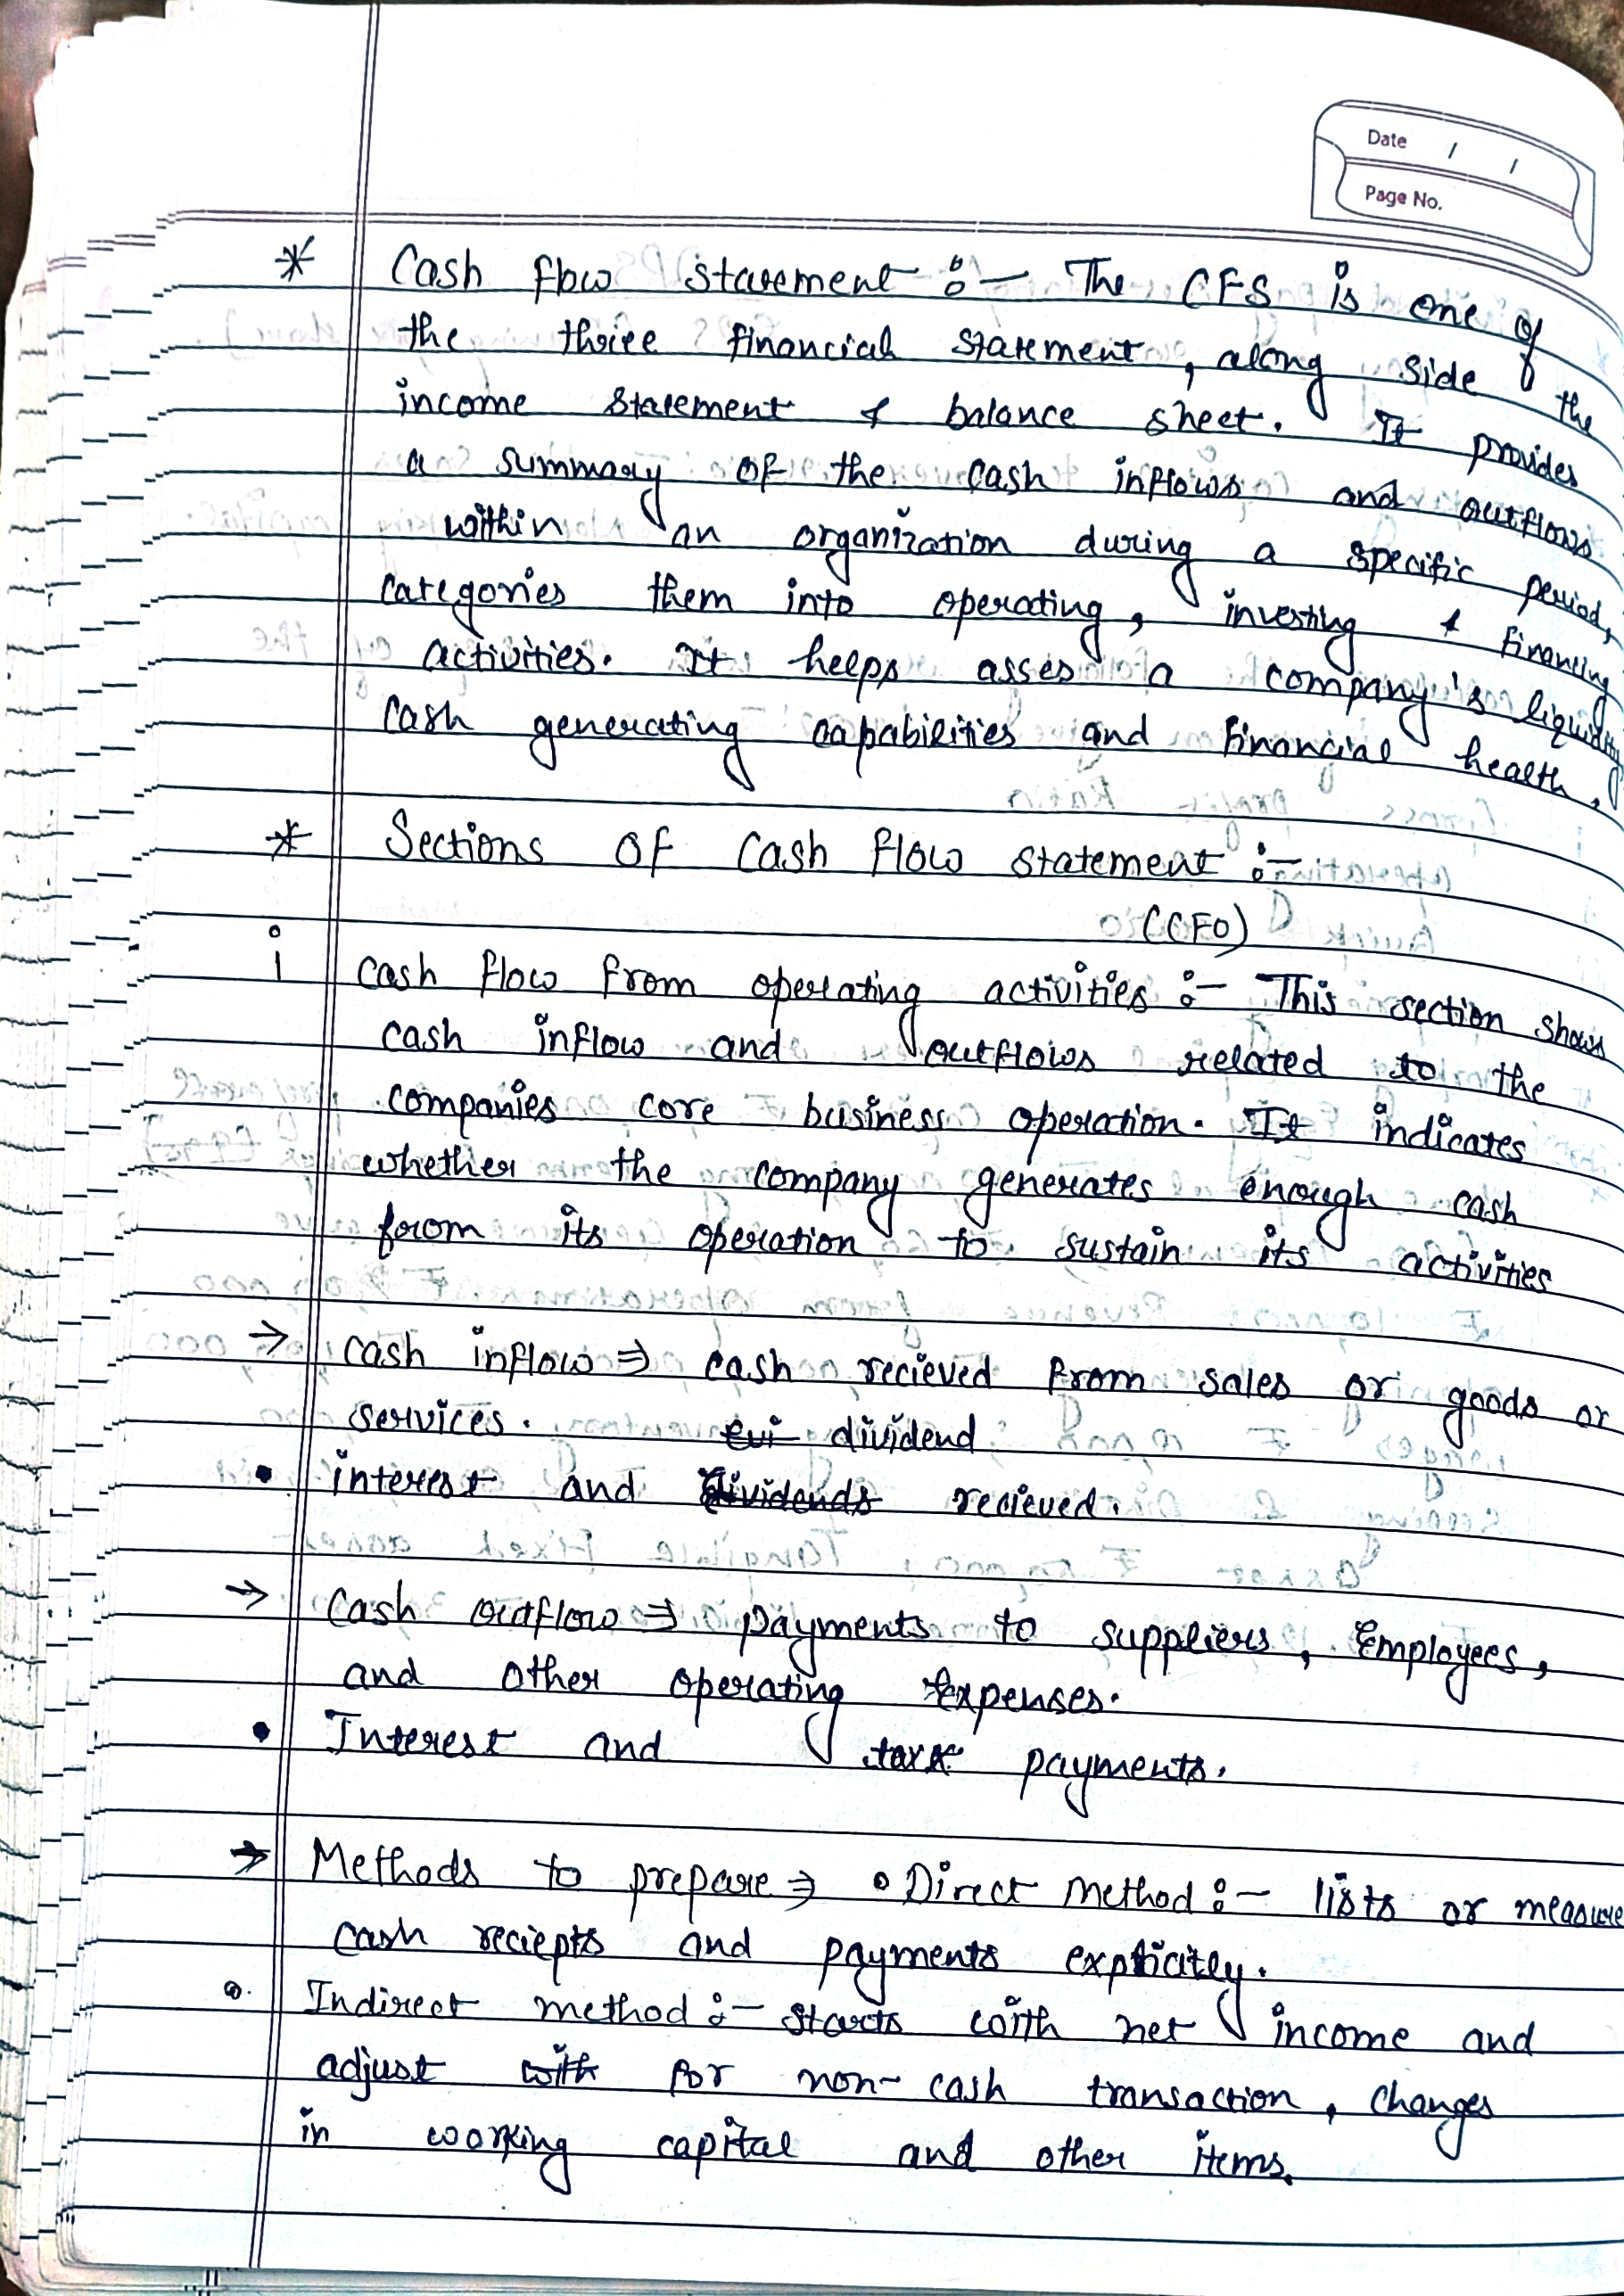 Date / /
Page No.
* Cash flow statement :- The CFS is one of
the three financial statement, along side the
income statement & balance sheet. It provides
a summary of the cash inflows and outflows
within an organization during a specific period,
categories them into operating, investing & financing
activities. It helps asses a company's liquidity
cash generating capabilities and financial health,
* Sections of cash flow statement :-
(CFO)
i cash flow from operating activities :- This section shows
cash inflow and outflows related to the
companies core business operation. It indicates
whether the company generates enough cash
from its operation to sustain its activities
→ cash inflow ⇒ cash recieved from sales or goods or
services. dividend
• interest and dividends recieved.
→ Cash outflow ⇒ payments to suppliers, Employees,
and other operating expenses.
• Interest and tax payments.
→ Methods to prepare ⇒ • Direct method :- lists or measure
cash reciepts and payments explicitly.
• Indirect method :- starts with net income and
adjust with for non-cash transaction, changes
in working capital and other items.